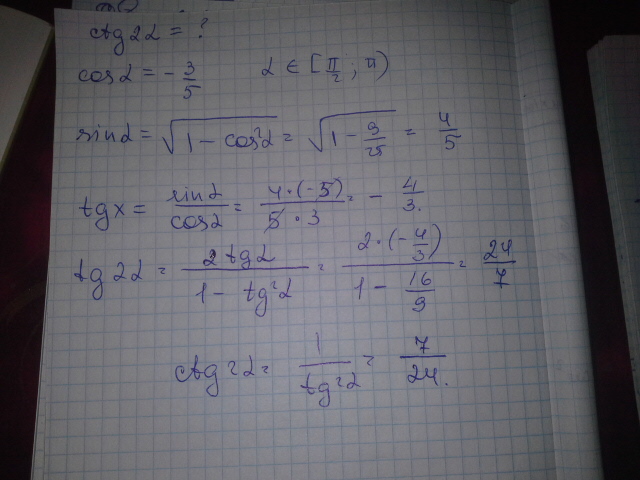 ctg 2α = ?
cos α = - 3/5 α ∈ [π/2 ; π)
sin α = √(1 - cos²α) = √(1 - 9/25) = 4/5
tg x = sin α / cos α = 4·(-5) / 5·3 = - 4/3.
tg 2α = 2 tg α / (1 - tg²α) = 2·(-4/3) / (1 - 16/9) = 24/7
ctg 2α = 1 / tg 2α = 7/24.